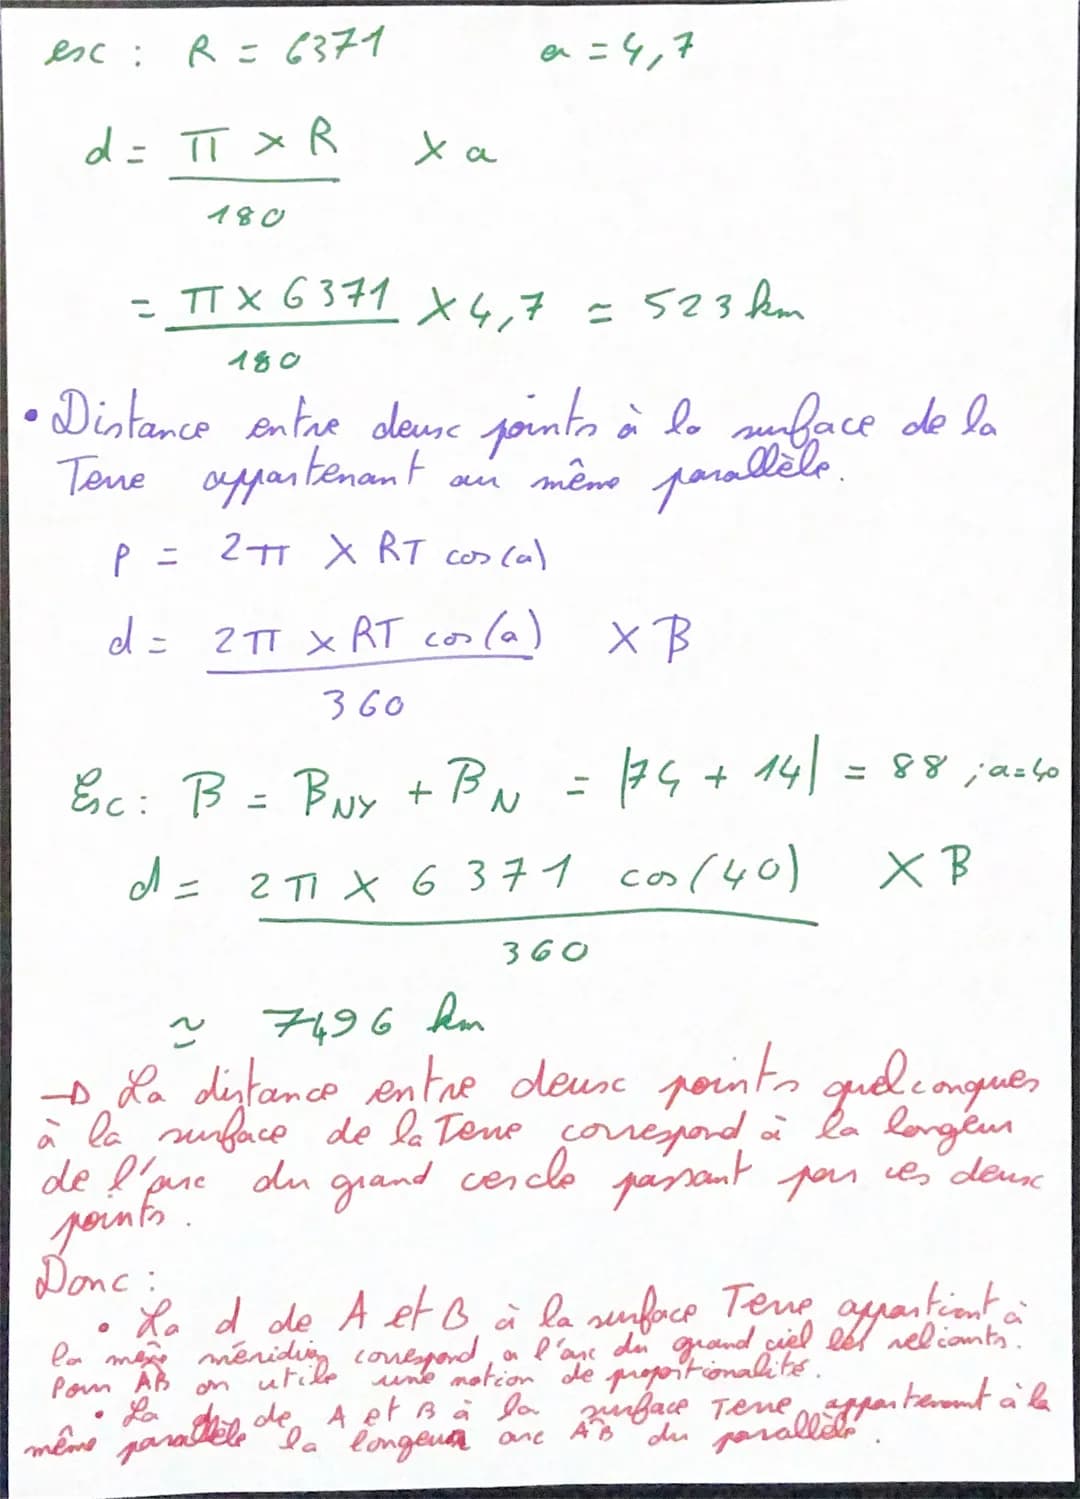 esc : R = 6371 a = 4,7
d = π × R × a
180
= π × 6371 × 4,7 = 523 km
180
• Distance entre deux points à la surface de la
Terre appartenant au même parallèle.
P = 2π × RT cos(a)
d = 2π × RT cos(a) × B
360
Esc : B = B_NY + B_N = |74 + 14| = 88 ; a=40
d = 2π × 6371 cos(40) × B
360
≃ 7496 km
→ La distance entre deux points quelconques
à la surface de la Terre correspond à la longeur
de l'arc du grand cercle passant par ces deux
points.
Donc :
• La d de A et B à la surface Terre appartient à
la même méridien correspond a l'arc du grand ciel les reliants.
Pour AB on utile une notion de proportionalité.
• La d de A et B à la surface Terre appartenant à la
même parallèle la longeur arc AB du parallèle.